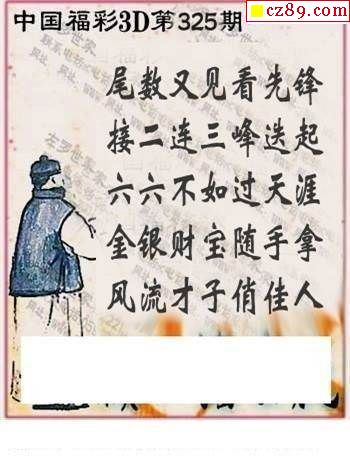 cz89.com
中国福彩3D第325期
尾数又见看先锋
接二连三峰迭起
六六不如过天涯
金银财宝随手拿
风流才子俏佳人